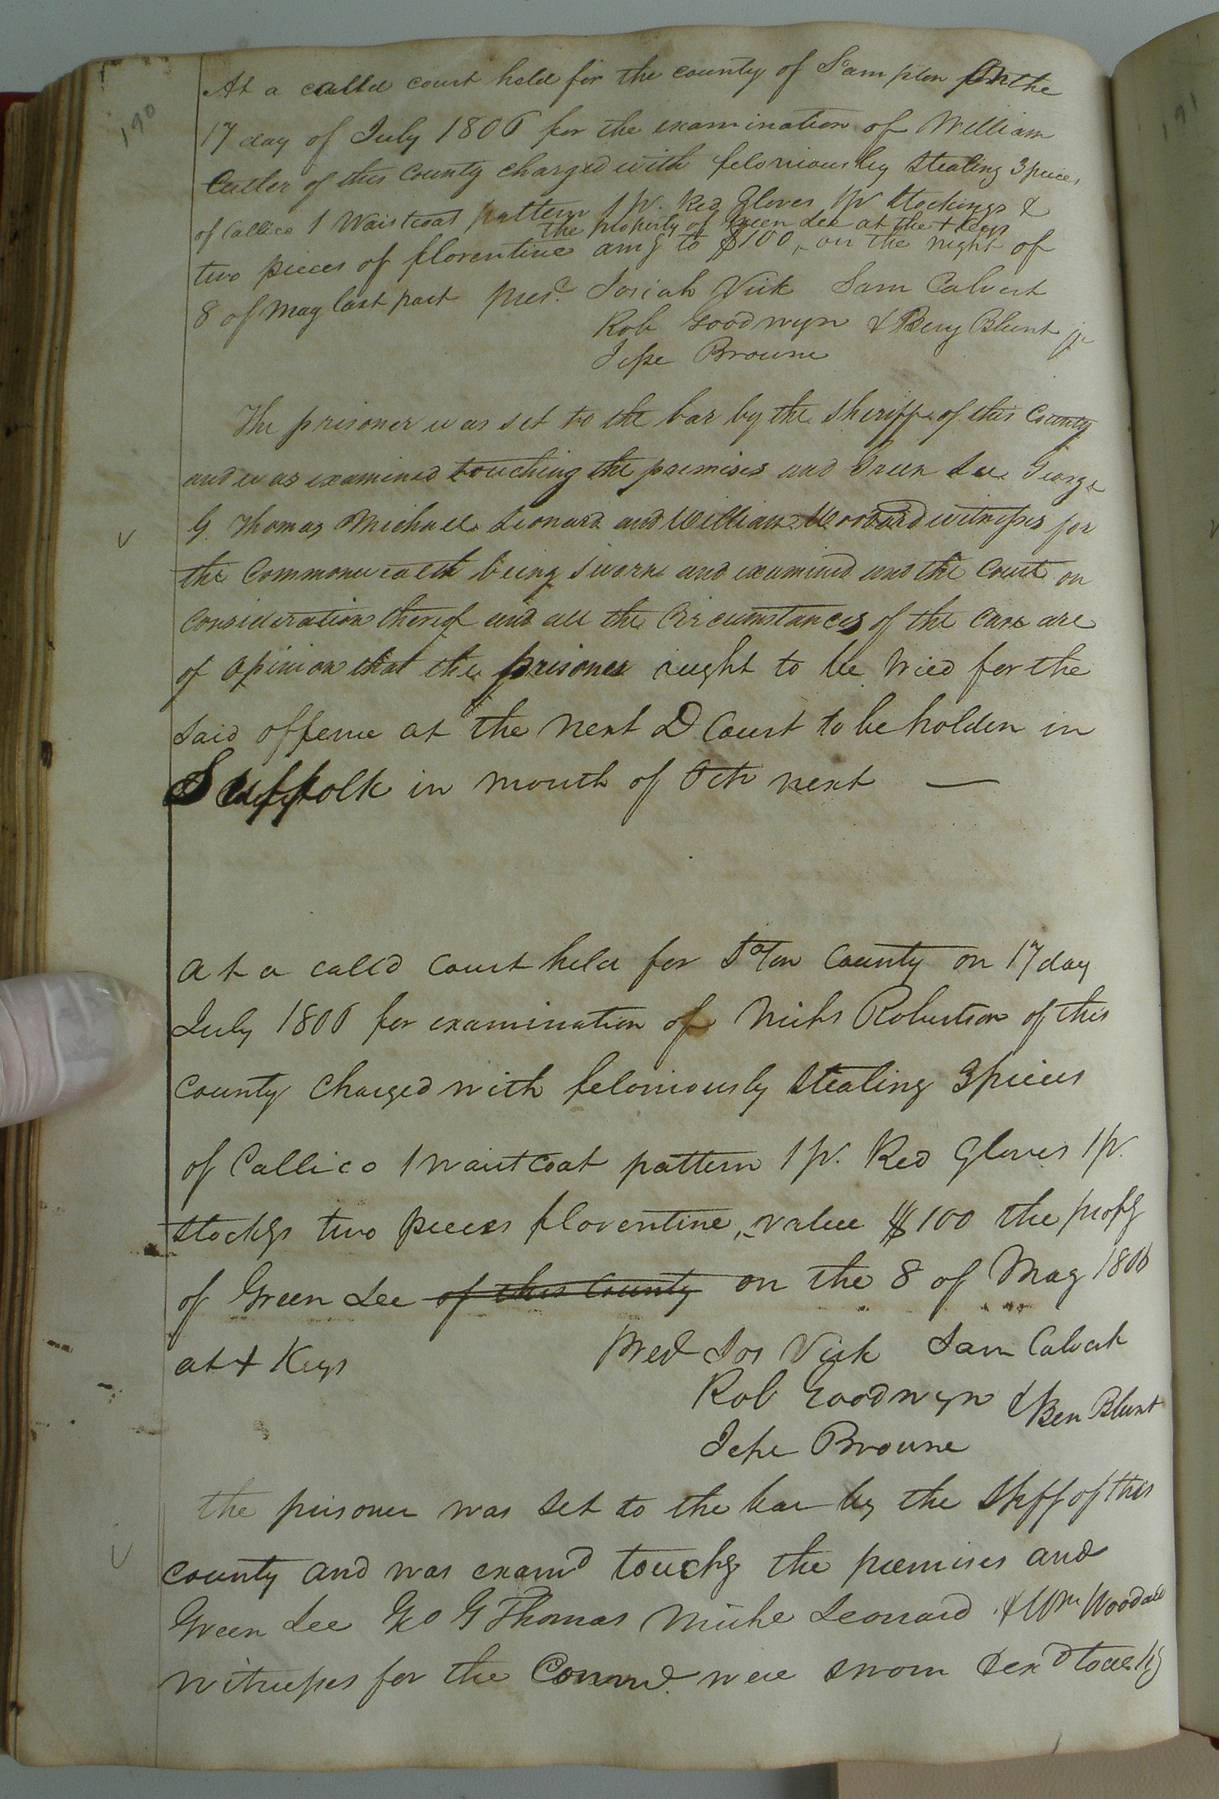 190
At a called court held for the county of S'ampton on the
17 day of July 1806 for the examination of William
Cutler of this County charged with feloniously stealing 3 pieces
of Callico 1 Waistcoat pattern 1 pr. Red Gloves 1 pr Stockings &
the property of Green Lee at the + Keys
two pieces of florentine amg to $100, on the night of
8 of May last past presc. Josiah Vick Sam Calvert
Rob Goodwyn & Benj Blunt jr
Jesse Browne
The prisoner was set to the bar by the sheriff of this County
and was examined touching the premises and Green Lee George
G. Thomas Michael Leonard and William Woodard witnesses for
the Commonwealth being sworn and examined and the Court on
consideration thereof and all the Circumstances of the case are
of opinion that the prisoner ought to be tried for the
said offence at the next D Court to be holden in
Suffolk in mouth of Octr next —
At a calld Court held for S°ton County on 17 day
July 1806 for examination of Nichs Robertson of this
county Charged with feloniously stealing 3 pieces
of Callico 1 waistcoat pattern 1 pr. Red Gloves 1 pr.
stockgs two pieces florentine, value $100 the propy
of Green Lee of this County on the 8 of May 1806
at + Keys Pres Jos Vick Sam Calvert
Rob Goodwyn & Ben Blunt
Jesse Browne
the prisoner was set to the bar by the Shff of this
county and was examd touchg the premises and
Green Lee Geo G Thomas Miche Leonard & Wm Woodard
witnesses for the Comm were sworn & exd touchg
191